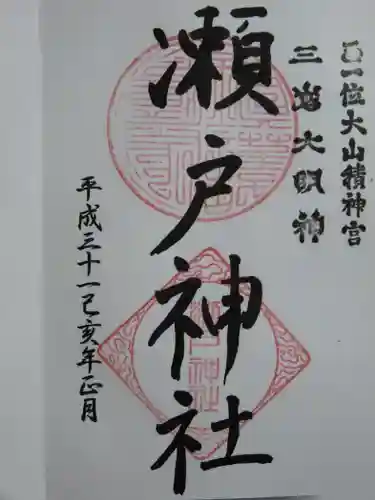 正一位大山積神宮
三嶌大明神
瀬戸神社
平成三十一己亥年正月